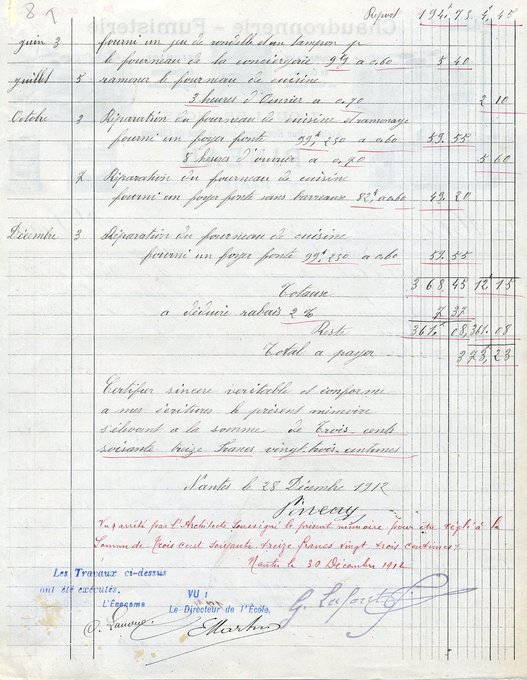 87
Report 194f 75 4f 45
juin 3 fourni un jeu de rondelle et un tampon p.
le fourneau de la conciergerie 9k a 0.60 5 40
juillet 5 ramoner le fourneau de cuisine
3 heures d'ouvrier a 0.70 2 10
Octobre 3 Réparation du fourneau de cuisine et ramonage
fourni un foyer fonte 99k.250 a 0.60 59.55
8 heures d'ouvrier a 0.70 5 60
7 Réparation du fourneau de cuisine
fourni un foyer fonte sans barreaux 82k a 0.60 49.20
Décembre 3 Réparation du fourneau de cuisine
fourni un foyer fonte 99k.250 a 0.60 59.55
Totaux 368.45 12 15
a déduire rabais 2% 7 37
Reste 361f 08 361.08
Total a payer 373f,23
Certifier sincère veritable et conforme
a mes écritures le présent mémoire
s'élevant a la somme de Trois-cents
soixante treize Francs vingt-trois-centimes
Nantes le 28 Décembre 1912
Vu, arrêté par l'Architecte soussigné le présent mémoire pour être réglé à la
Somme de Trois cent soixante treize francs vingt trois centimes.
Nantes le 30 Décembre 1912
Les Travaux ci-dessus
ont été exécutés.
L'Économe
VU :
Le Directeur de l'École,
EMartin